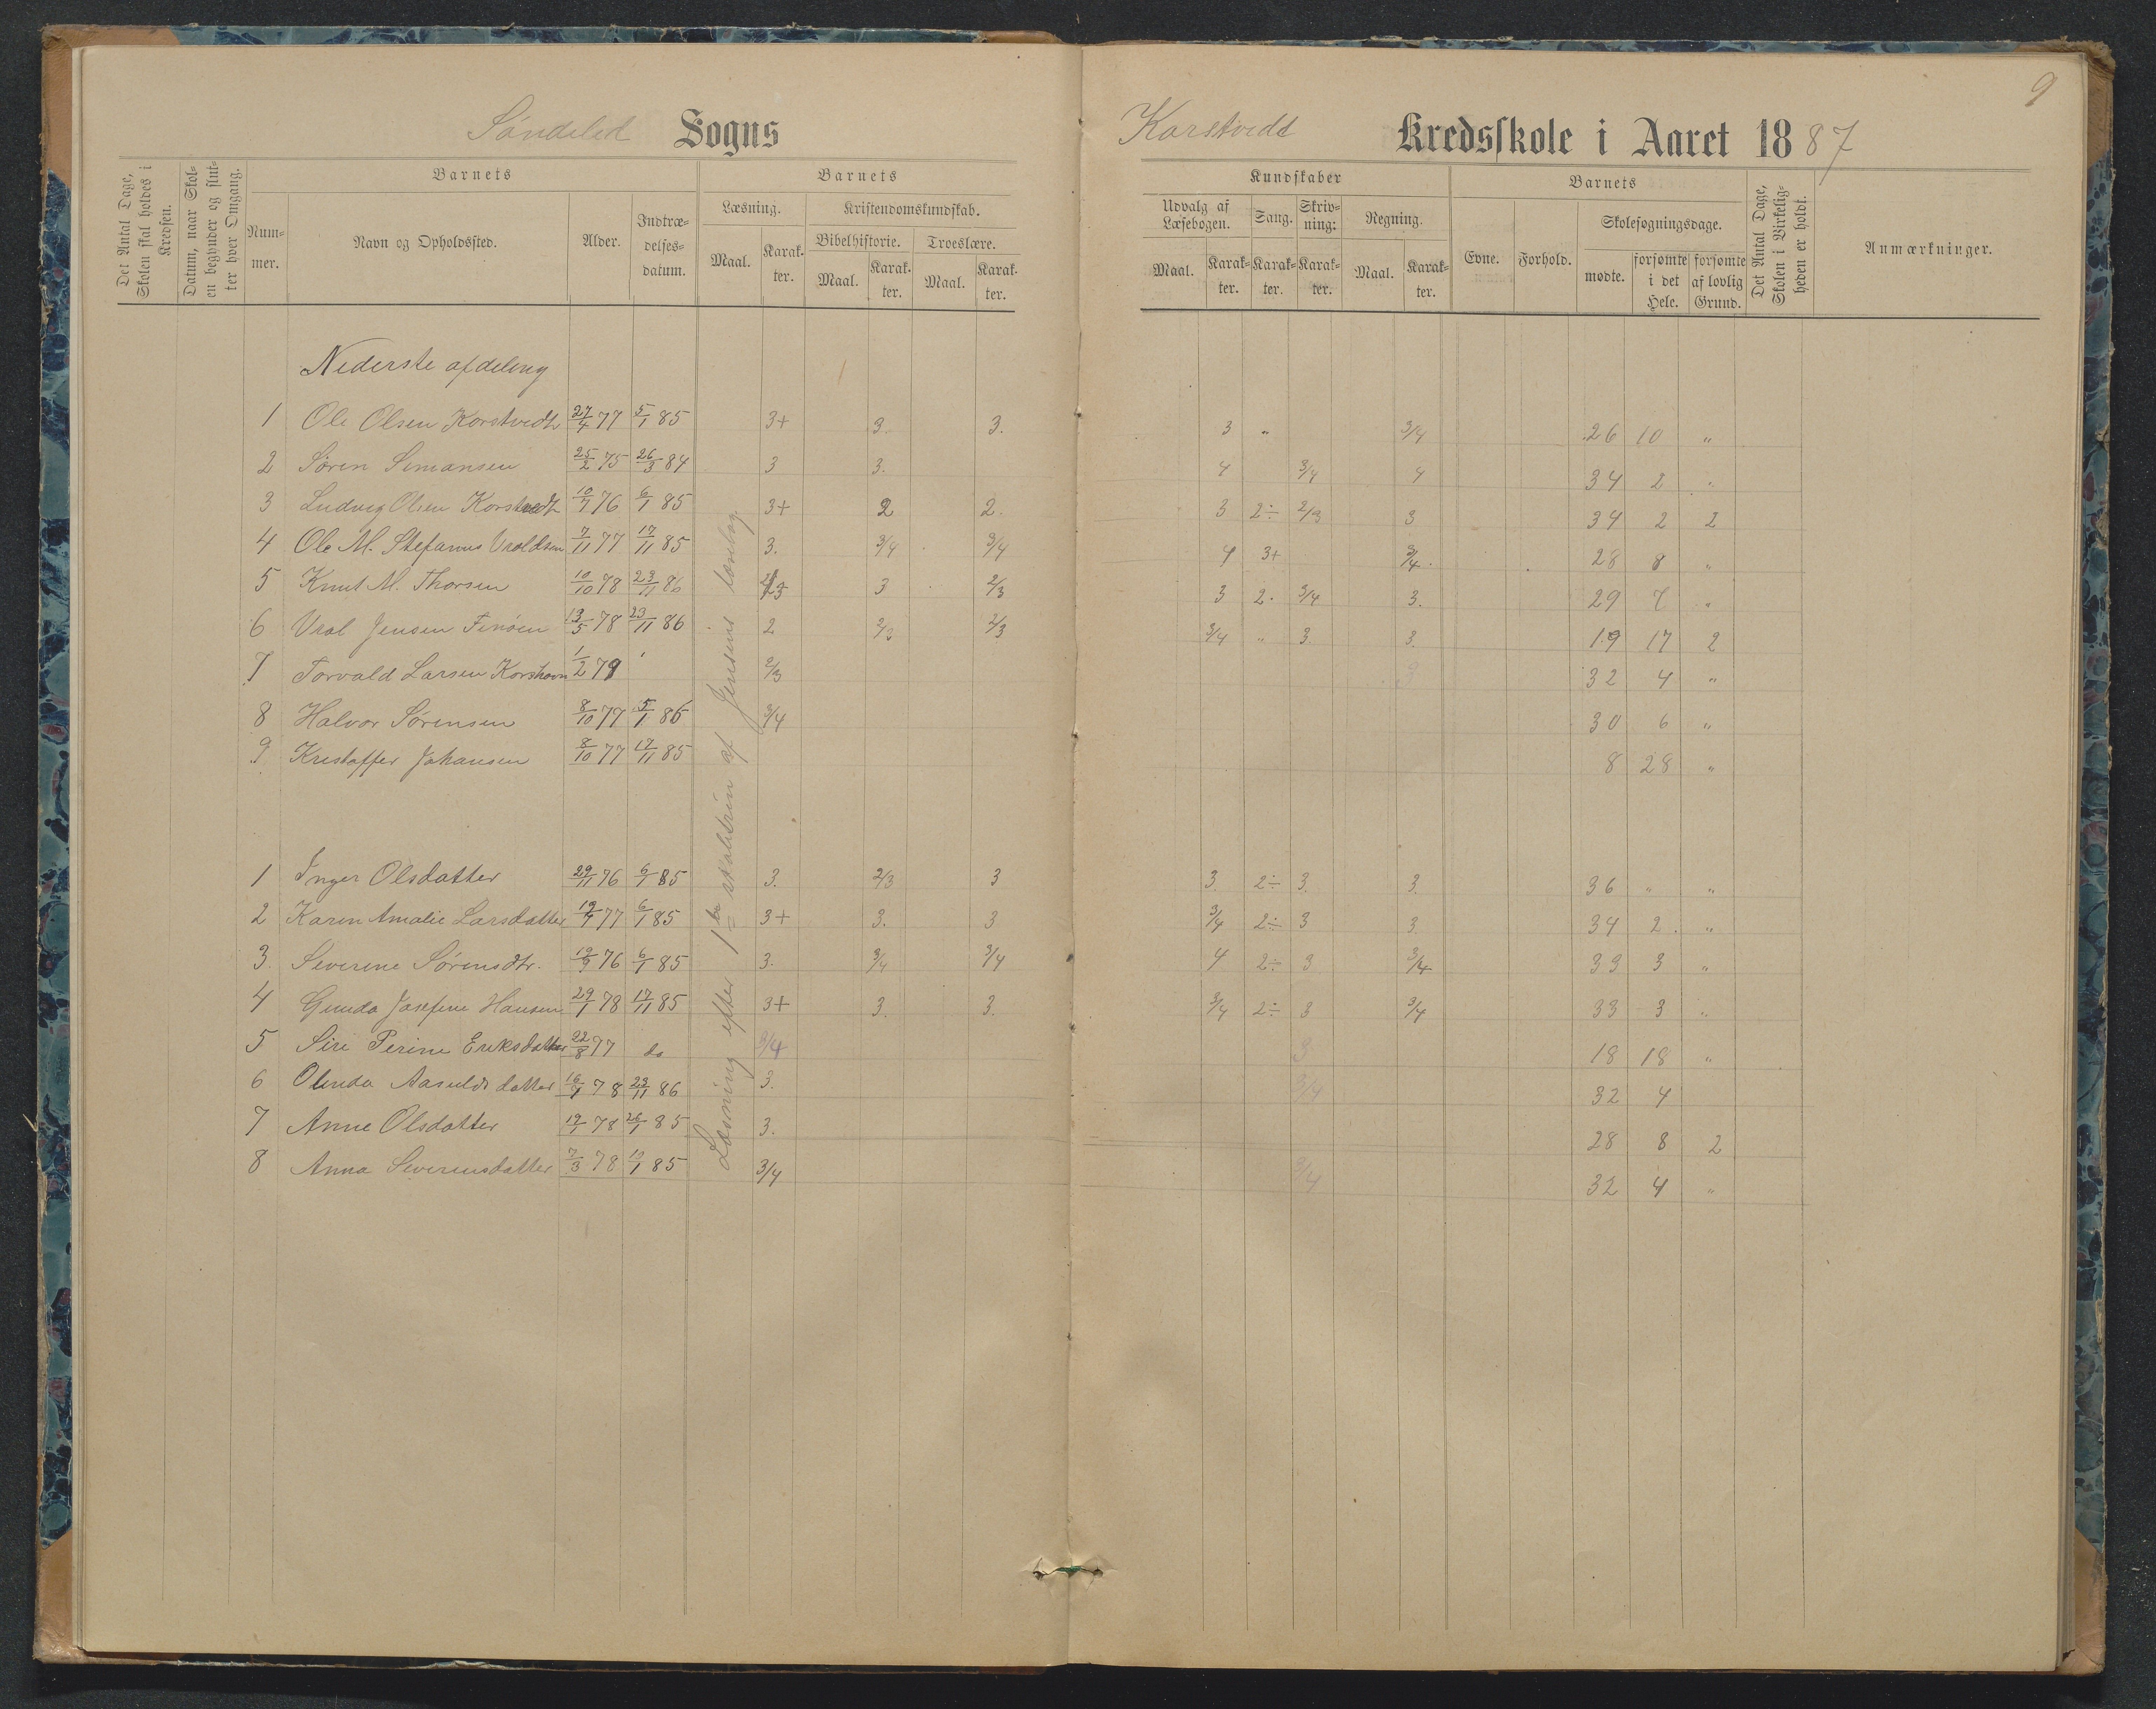 9
Søndeled Sogns
Korstvedt Kredsskole i Aaret 1887
Det Antal Dage, Skolen skal holdes i Kredsen.
Datum, naar Skolen begynder og slutter hver Omgang.
Barnets
Nummer.
Navn og Opholdssted.
Alder.
Indtrædelsesdatum.
Barnets
Læsning.
Maal.
Karakter.
Kristendomskundskab.
Bibelhistorie.
Maal.
Karakter.
Troeslære.
Maal.
Karakter.
Kundskaber
Udvalg af Læsebogen.
Maal.
Karakter.
Sang.
Karakter.
Skrivning:
Karakter.
Regning.
Maal.
Karakter.
Barnets
Evne.
Forhold.
Skolesøgningsdage.
mødte.
forsømte i det Hele.
forsømte af lovlig Grund.
Det Antal Dage, Skolen i Virkeligheden er holdt.
Anmærkninger.
Nederste afdeling
Læsning efter 1ste skoletrin af Jensens læsebog
1 Ole Olsen Korstvedt 27/4 77 5/1 85 3+ 3. 3. 3 " 3/4 26 10 "
2 Søren Simonsen 25/2 75 26/3 84 3 3. 4 3/4 4 34 2 "
3 Ludvig Olsen Korstvedt 10/7 76 6/1 85 3+ 2 2. 3 2÷ 2/3 3 34 2 2
4 Ole M. Stefanus Vroldsen 7/11 77 17/11 85 3. 3/4 3/4 4 3+ 3/4. 28 8 "
5 Knut M. Thorsen 10/10 78 23/11 86 3 2/3 3 2. 3/4 3. 29 7 "
6 Vrol Jensen Finøen 13/5 78 23/11 86 2 2/3 2/3 3/4 " 3. 3. 19 17 2
7 Torvald Larsen Korshavn 1/2 79 2/3 3 32 4 "
8 Halvor Sørensen 8/10 77 5/1 86 3/4 30 6 "
9 Kristoffer Johansen 8/10 77 17/11 85 8 28 "
1 Inger Olsdatter 29/11 76 6/1 85 3. 2/3 3 3. 2÷ 3. 3. 36 " "
2 Karen Amalie Larsdatter 19/7 77 6/1 85 3+ 3. 3 3/4 2÷ 3 3 34 2. "
3. Severine Sørensdtr. 19/9 76 6/1 85 3. 3/4 3/4 4 2÷ 3 3/4 33 3 "
4 Gunda Josefine Hansen 29/1 78 17/11 85 3+ 3. 3. 3/4 2÷ 3 3/4 33 3 "
5 Siri Perine Eriksdatter 22/8 77 do 3/4 3 18 18 "
6 Olinda Aasulds datter 16/9 78 23/11 86 3. 3/4 32 4
7 Anne Olsdatter 19/1 78 26/1 85 3. 28 8 2
8 Anna Severinsdatter 7/3 78 19/1 85 3/4 3/4 32 4 "